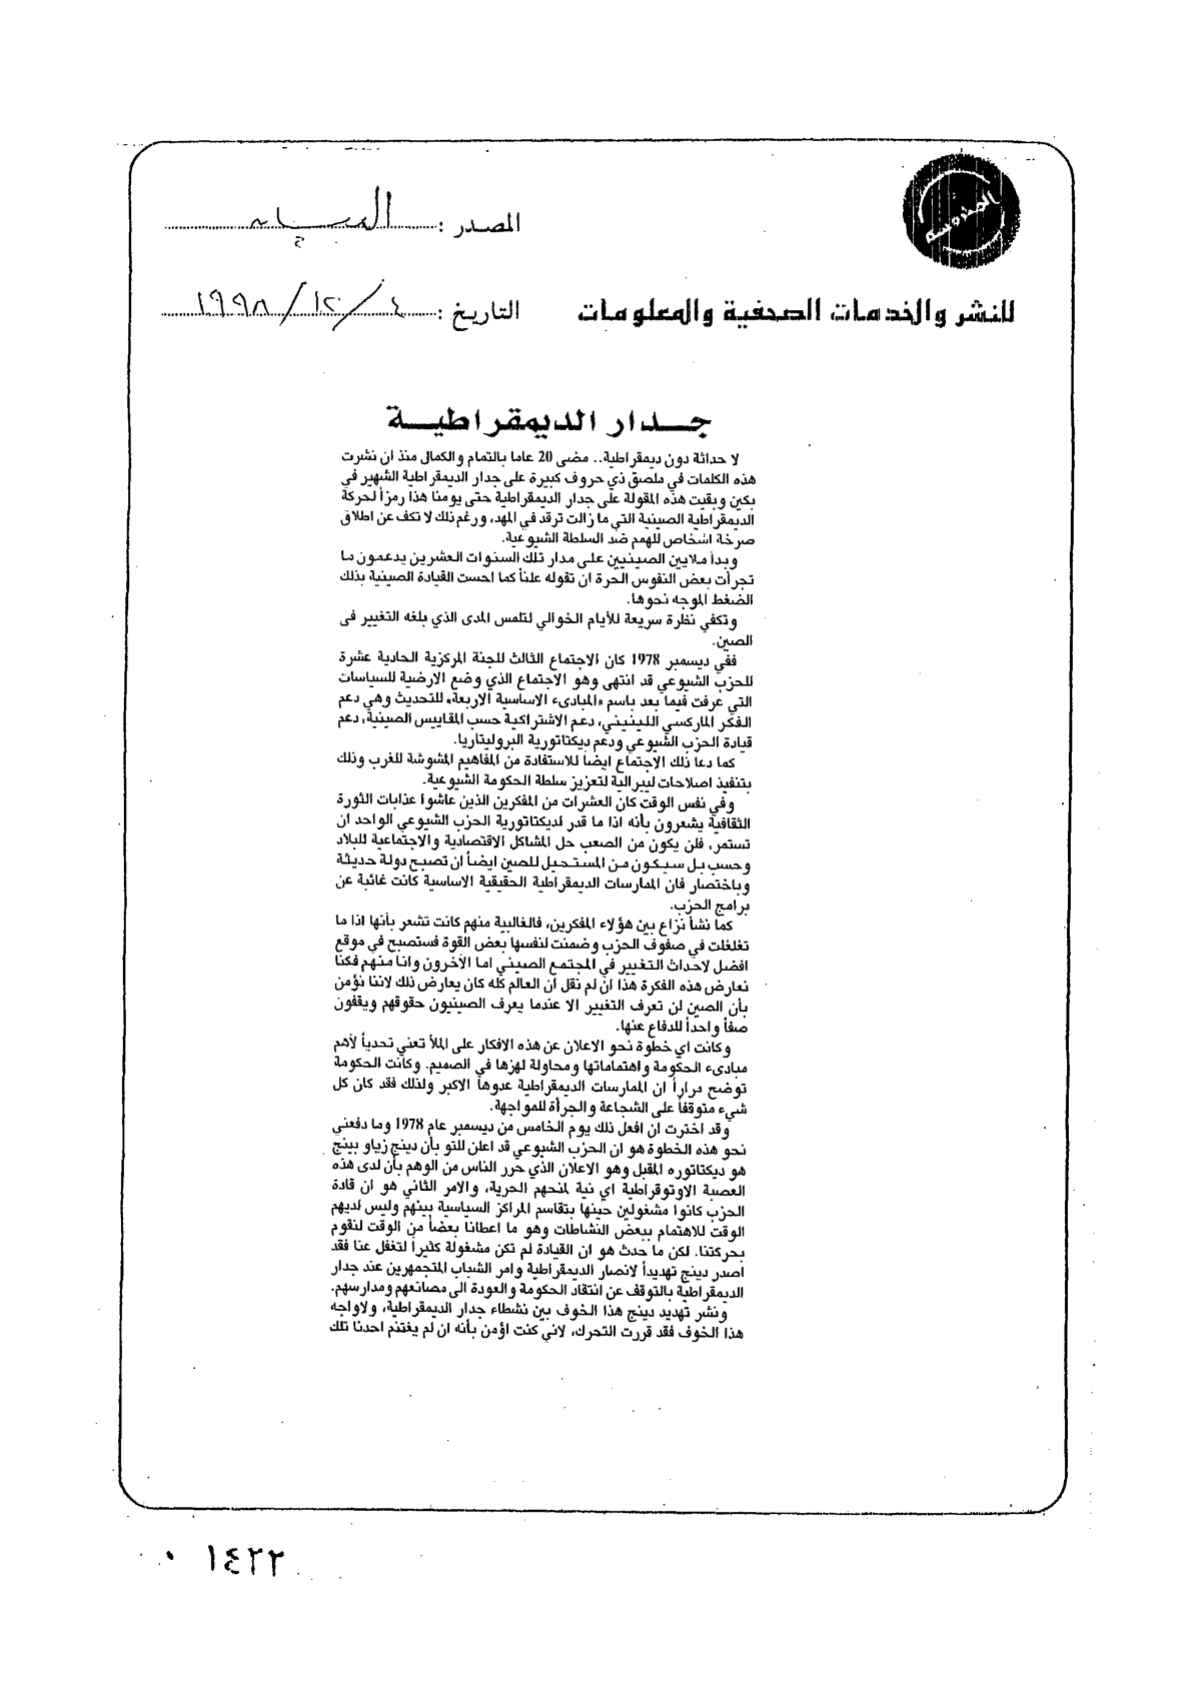 المصدر : البيان
للنشر والخدمات الصحفية والمعلومات
التاريخ : ٤ / ١٢ / ١٩٩٨
جدار الديمقراطية
لا حداثة دون ديمقراطية.. مضى 20 عاما بالتمام والكمال منذ ان نشرت
هذه الكلمات في ملصق ذي حروف كبيرة على جدار الديمقراطية الشهير في
بكين وبقيت هذه المقولة على جدار الديمقراطية حتى يومنا هذا رمزاً لحركة
الديمقراطية الصينية التي ما زالت ترقد في المهد، ورغم ذلك لا تكف عن اطلاق
صرخة اشخاص للهمم ضد السلطة الشيوعية.
وبدأ ملايين الصينيين على مدار تلك السنوات العشرين يدعمون ما
تجرأت بعض النفوس الحرة ان تقوله علناً كما احست القيادة الصينية بذلك
الضغط الموجه نحوها.
وتكفي نظرة سريعة للأيام الخوالي لتلمس المدى الذي بلغه التغيير فى
الصين.
ففي ديسمبر 1978 كان الاجتماع الثالث للجنة المركزية الحادية عشرة
للحزب الشيوعي قد انتهى وهو الاجتماع الذي وضع الارضية للسياسات
التي عرفت فيما بعد باسم «المبادىء الاساسية الاربعة» للتحديث وهي دعم
الفكر الماركسي اللينيني، دعم الاشتراكية حسب المقاييس الصينية، دعم
قيادة الحزب الشيوعي ودعم ديكتاتورية البروليتاريا.
كما دعا ذلك الاجتماع ايضاً للاستفادة من المفاهيم المشوشة للغرب وذلك
بتنفيذ اصلاحات ليبرالية لتعزيز سلطة الحكومة الشيوعية.
وفي نفس الوقت كان العشرات من المفكرين الذين عاشوا عذابات الثورة
الثقافية يشعرون بأنه اذا ما قدر لديكتاتورية الحزب الشيوعي الواحد ان
تستمر، فلن يكون من الصعب حل المشاكل الاقتصادية والاجتماعية للبلاد
وحسب بل سيكون من المستحيل للصين ايضاً ان تصبح دولة حديثة
وباختصار فان الممارسات الديمقراطية الحقيقية الاساسية كانت غائبة عن
برامج الحزب.
كما نشأ نزاع بين هؤلاء المفكرين، فالغالبية منهم كانت تشعر بأنها اذا ما
تغلغلت في صفوف الحزب وضمنت لنفسها بعض القوة فستصبح في موقع
افضل لاحداث التغيير في المجتمع الصيني اما الآخرون وانا منهم فكنا
نعارض هذه الفكرة هذا ان لم نقل أن العالم كله كان يعارض ذلك لاننا نؤمن
بأن الصين لن تعرف التغيير الا عندما يعرف الصينيون حقوقهم ويقفون
صفاً واحداً للدفاع عنها.
وكانت اي خطوة نحو الاعلان عن هذه الافكار على الملأ تعني تحدياً لأهم
مبادىء الحكومة واهتماماتها ومحاولة لهزها في الصميم. وكانت الحكومة
توضح مراراً ان الممارسات الديمقراطية عدوها الاكبر ولذلك فقد كان كل
شيء متوقفاً على الشجاعة والجرأة للمواجهة.
وقد اخترت ان افعل ذلك يوم الخامس من ديسمبر عام 1978 وما دفعني
نحو هذه الخطوة هو ان الحزب الشيوعي قد اعلن للتو بأن دينج زياو بينج
هو ديكتاتوره المقبل وهو الاعلان الذي حرر الناس من الوهم بأن لدى هذه
العصبة الاوتوقراطية اي نية لمنحهم الحرية، والامر الثاني هو ان قادة
الحزب كانوا مشغولين حينها بتقاسم المراكز السياسية بينهم وليس لديهم
الوقت للاهتمام ببعض النشاطات وهو ما اعطانا بعضاً من الوقت لنقوم
بحركتنا. لكن ما حدث هو ان القيادة لم تكن مشغولة كثيراً لتغفل عنا فقد
اصدر دينج تهديداً لانصار الديمقراطية وامر الشباب المتجمهرين عند جدار
الديمقراطية بالتوقف عن انتقاد الحكومة والعودة الى مصانعهم ومدارسهم.
ونشر تهديد دينج هذا الخوف بين نشطاء جدار الديمقراطية، ولاواجه
هذا الخوف فقد قررت التحرك، لاني كنت اؤمن بأنه ان لم يغتنم احدنا تلك
٠١٤٢٢